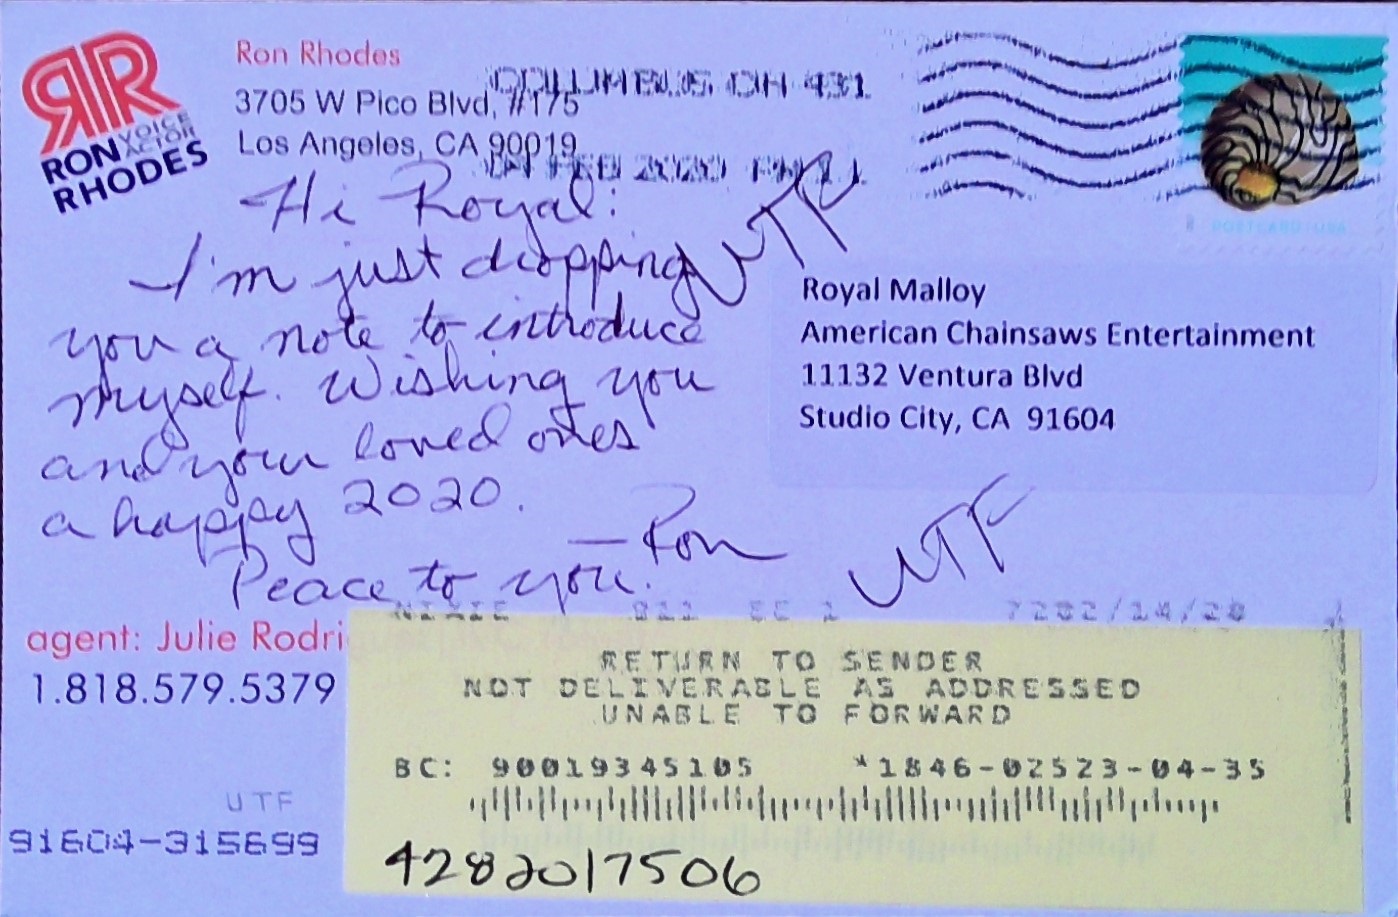 RR
RON VOICE ACTOR
RHODES
Ron Rhodes
3705 W Pico Blvd, #175
Los Angeles, CA 90019
COLUMBUS OH 431
FEB 2020 PM
POSTCARD USA
Hi Royal:
I'm just dropping
you a note to introduce
myself. Wishing you
and your loved ones
a happy 2020.
—Ron
Peace to you.
UTF
Royal Malloy
American Chainsaws Entertainment
11132 Ventura Blvd
Studio City, CA 91604
UTF
agent: Julie Rodri
1.818.579.5379
NIXIE 7202/14/20
RETURN TO SENDER
NOT DELIVERABLE AS ADDRESSED
UNABLE TO FORWARD
BC: 90019345105 *1846-02523-04-35
UTF
91604-315699
4282017506